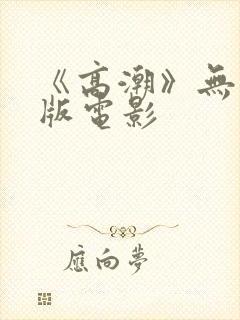 《高潮》無
版電影
應向夢